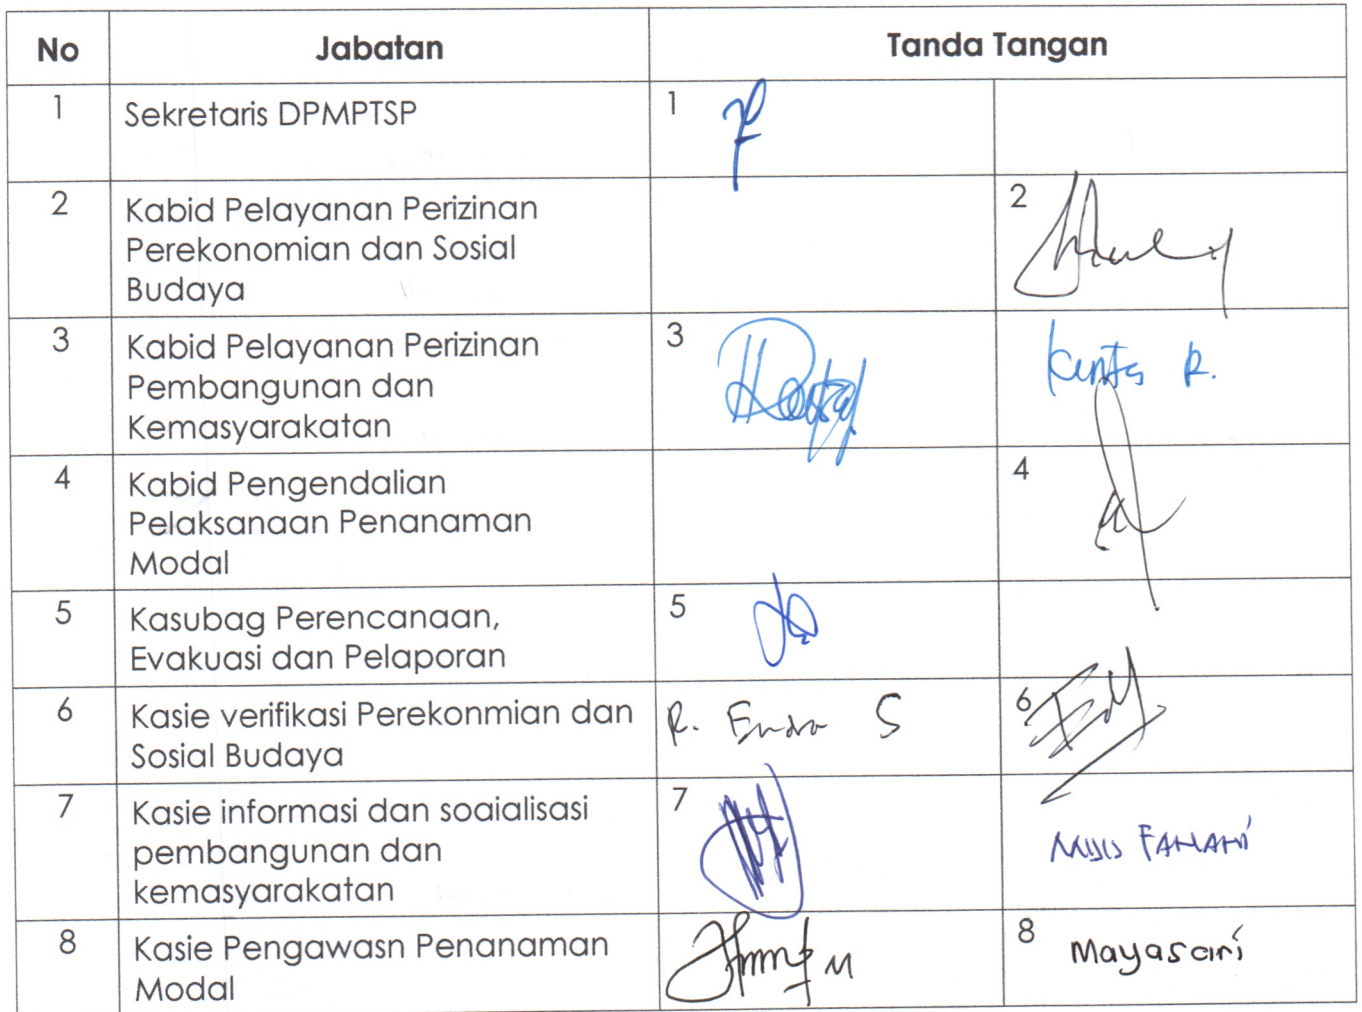 No Jabatan Tanda Tangan
1 Sekretaris DPMPTSP 1
2 Kabid Pelayanan Perizinan
Perekonomian dan Sosial
Budaya
2
3 Kabid Pelayanan Perizinan
Pembangunan dan
Kemasyarakatan
3
R.
4 Kabid Pengendalian
Pelaksanaan Penanaman
Modal
4
5 Kasubag Perencanaan,
Evakuasi dan Pelaporan
5
6 Kasie verifikasi Perekonmian dan
Sosial Budaya
R. Endro S
6
7 Kasie informasi dan soaialisasi
pembangunan dan
kemasyarakatan
7
FANANI
8 Kasie Pengawasn Penanaman
Modal
8 Mayasari